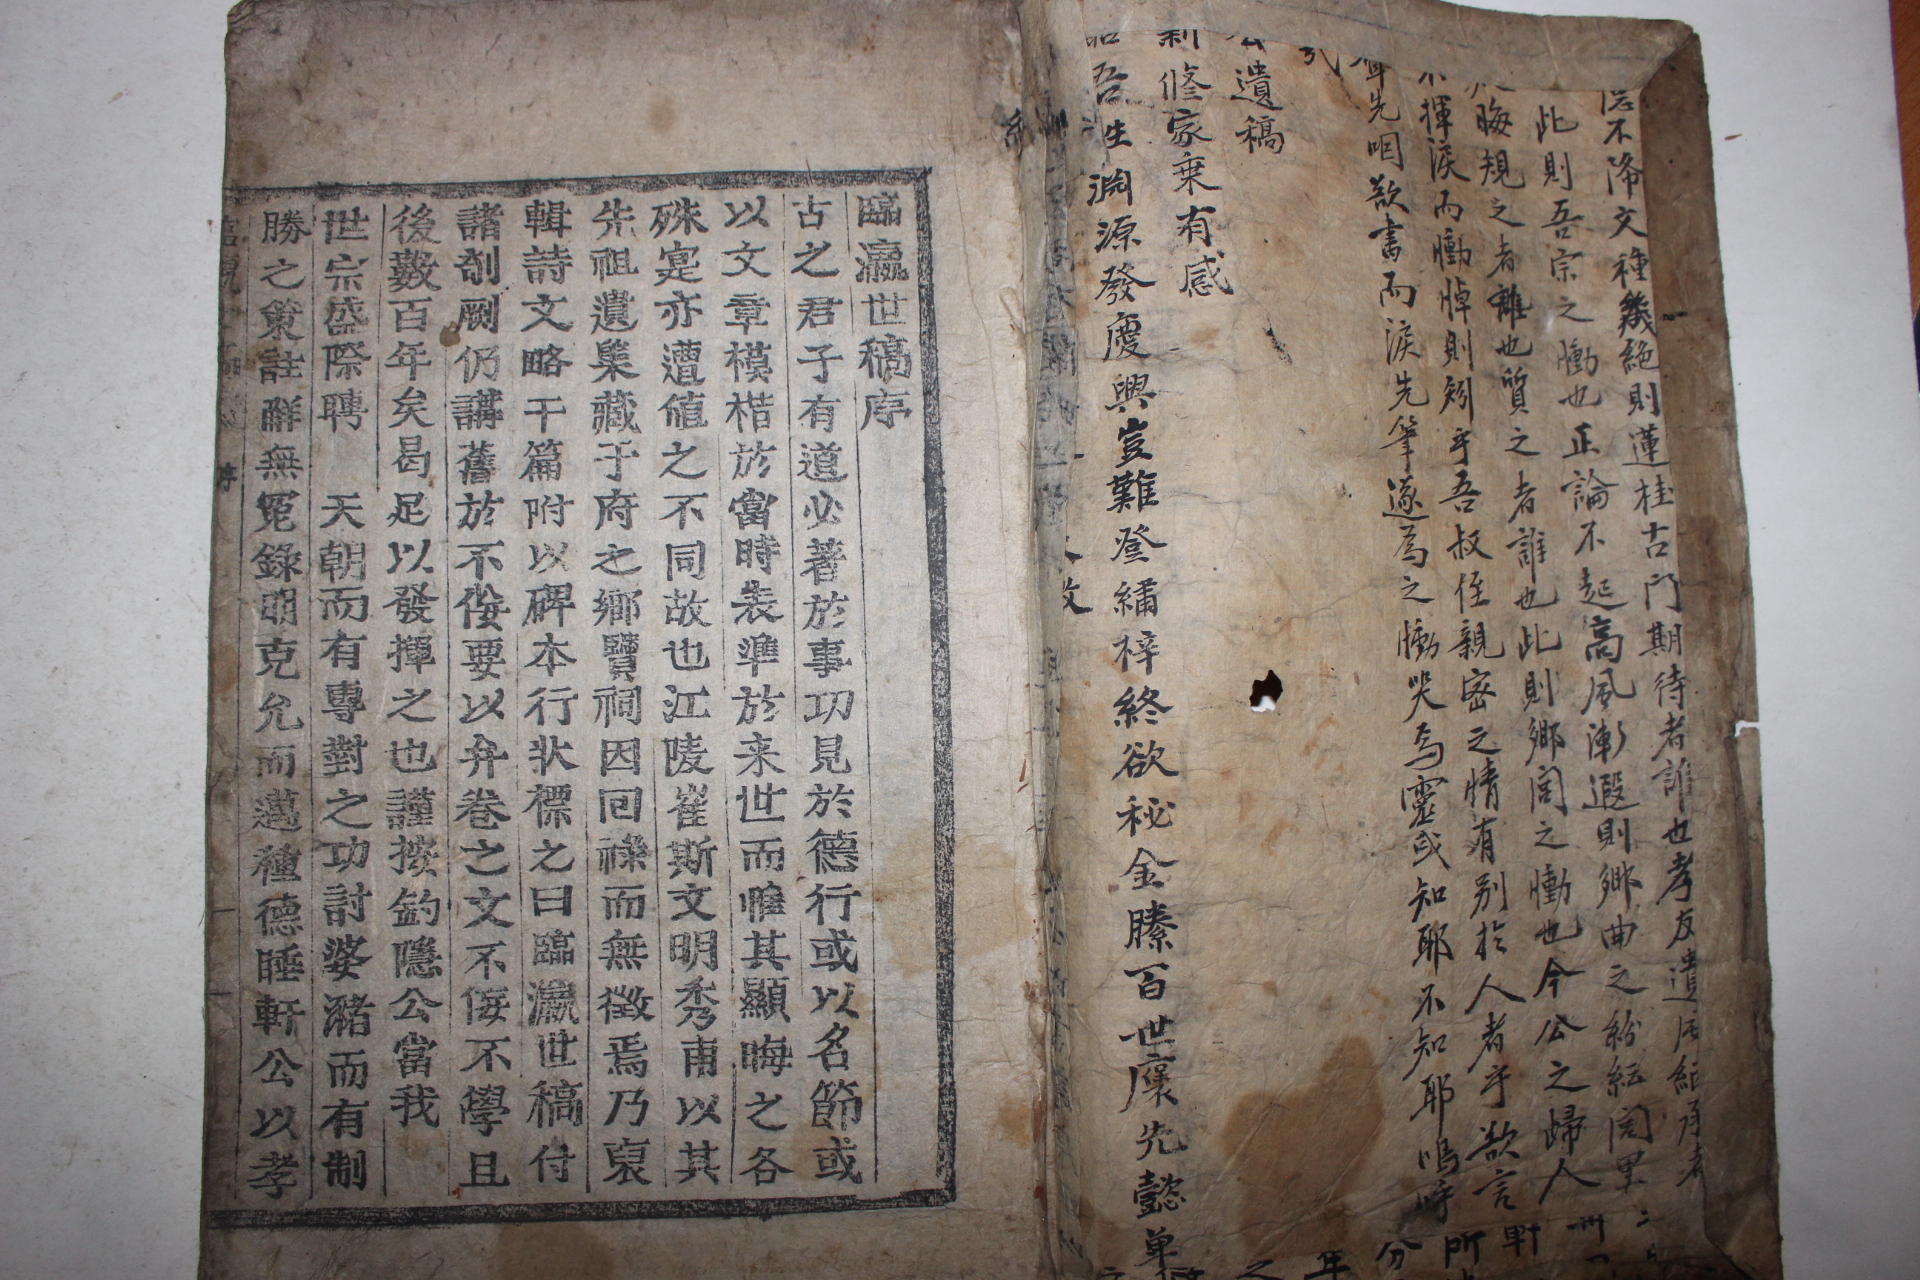 隱不降文種幾絶則蓮桂古門期待者誰也孝友遺
此則吾宗之慟也正論不起高風漸遐則鄉曲之紛紜閭里
晦規之者誰也質之者誰也此則鄉閭之慟也今公之歸人
揮淚而慟悼則矧乎吾叔侄親密之情有別於人者乎欲言
先咽欲書而淚先筆遂爲之慟哭焉靈或知耶不知耶嗚呼
遺稿
新修家乗有感
吾姓淵源發慶興豈難登繡梓終欲秘金縢百世褒先懿單
臨瀛世稿序
古之君子有道必著於事功見於德行或以名節或
以文章模楷於當時表準於来世而惟其顯晦之各
殊寔亦遭値之不同故也江陵崔斯文明秀甫以其
先祖遺集藏于府之鄉賢祠因回祿而無徵焉乃裒
輯詩文略干篇附以碑本行狀標之曰臨瀛世稿付
諸剞劂仍講舊於不佞要以弁巻之文不佞不學且
後數百年矣曷足以發揮之也謹按釣隱公當我
世宗盛際聘　天朝而有專對之功討婆瀦而有制
勝之策註辭無冤錄明克允而邁種德睡軒公以孝